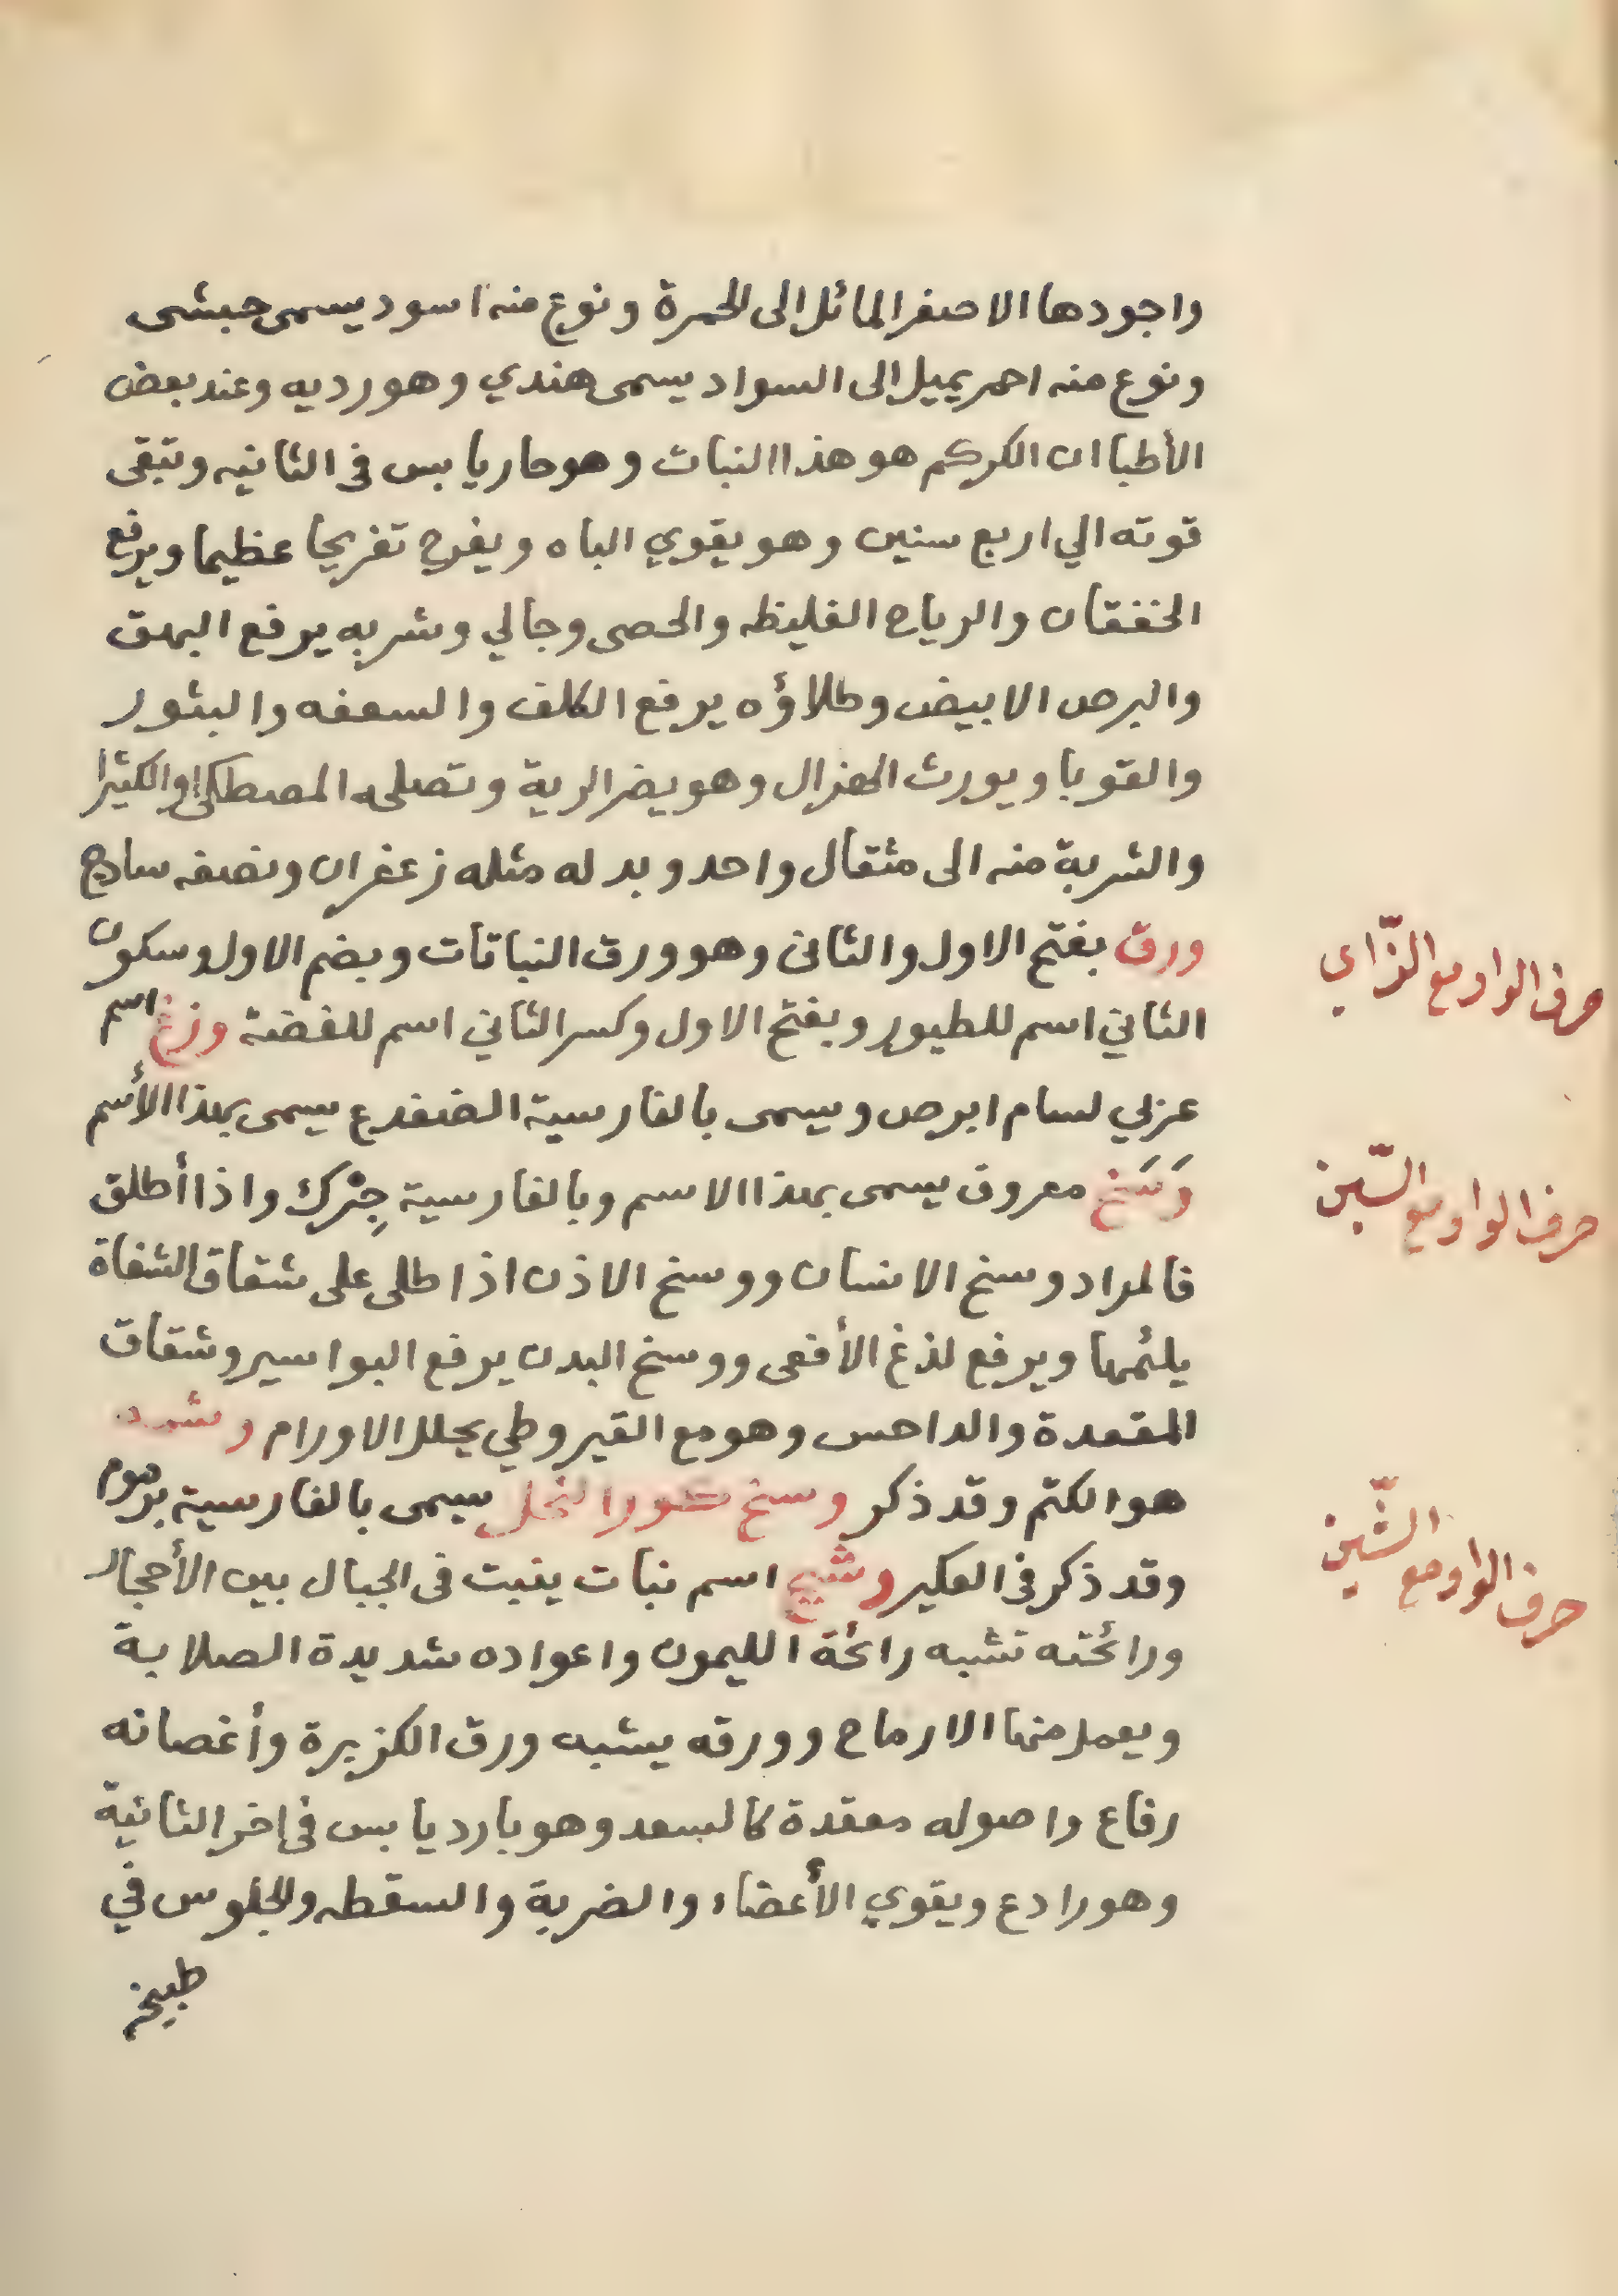 واجودها الاصفر المائل الى الحمرة ونوع منه اسود يسمى حبشى
ونوع منه احمر يميل الى السواد يسمى هندي وهو رديه وعند بعض
الأطبا ان الكركم هو هذا النبات وهو حار يابس فى الثانيه وتبقى
قوته الي اربع سنين وهو يقوي الباه ويفرح تفريحا عظيما ويرفع
الخفقان والرياح الغليظه والحصى وجالي وشربه يرفع البهق
والبرص الابيض وطلاؤه يرفع الكلف والسعفه والبثور
والقوبا ويورث الهزال وهو يضر الرية وتصلحه المصطكى والكثيرا
والشربة منه الى مثقال واحد وبدله مثله زعفران ونصفه سادج
ورق بفتح الاول والثانى وهو ورق النباتات وبضم الاول وسكون
الثاني اسم للطيور وبفتح الاول وكسر الثاني اسم للفضة وزغ اسم
عربي لسام ابرص ويسمى بالفارسية الضفدع يسمى بهذا الأسم
وَسَخ معروف يسمى بهذا الاسم وبالفارسية چِرْك واذا أطلق
فالمراد وسخ الانسان ووسخ الاذن اذا طلى على شقاق الشفاة
يلئمها ويرفع لذغ الأفعى ووسخ البدن يرفع البواسير وشقاق
المقعدة والداحس وهو مع القيروطي يحلل الاورام وشمه
هو الكتم وقد ذكر وسخ كور النحل يسمى بالفارسية برموم
وقد ذكر فى العكبر وشيج اسم نبات ينبت فى الجبال بين الأحجار
ورائحته تشبه رائحة الليمون واعواده شديدة الصلابة
ويعمل منها الارماح وورقه يشبه ورق الكزبرة وأغصانه
رفاع واصوله معقدة كالسعد وهو بارد يابس فى اخر الثانية
وهو رادع ويقوي الأعضاء والضربة والسقطه والجلوس في
طبيخه
حرف الواو مع الزّاي
حرف الواو مع السّين
حرف الواو مع الشّين